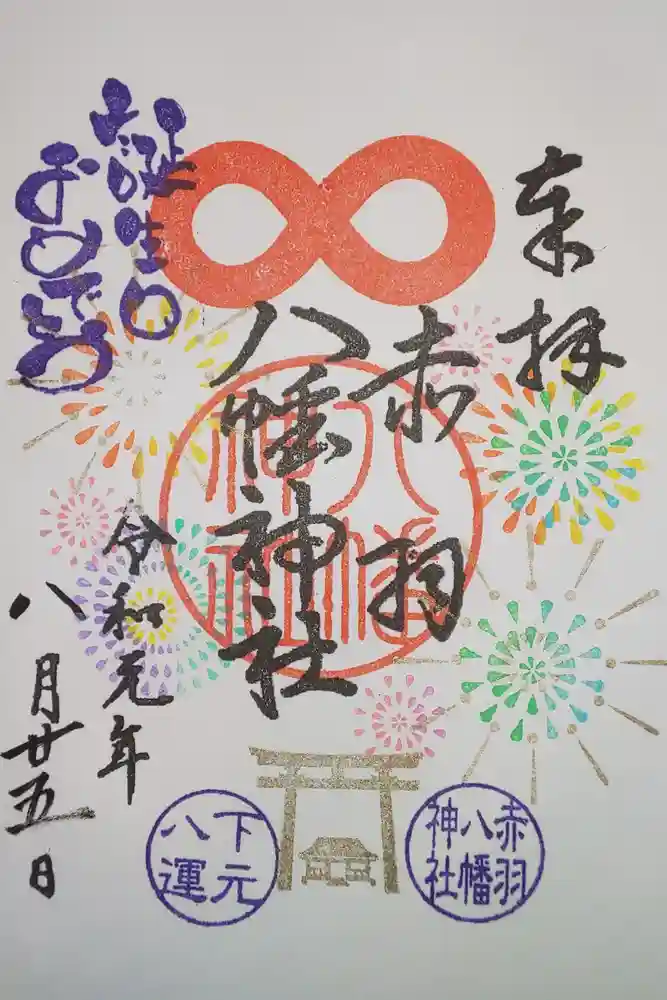 奉拝
赤羽
八幡神社
八幡
神社
お誕生日
おめでとう
令和元年
八月廿五日
赤羽
八幡
神社
下元
八運